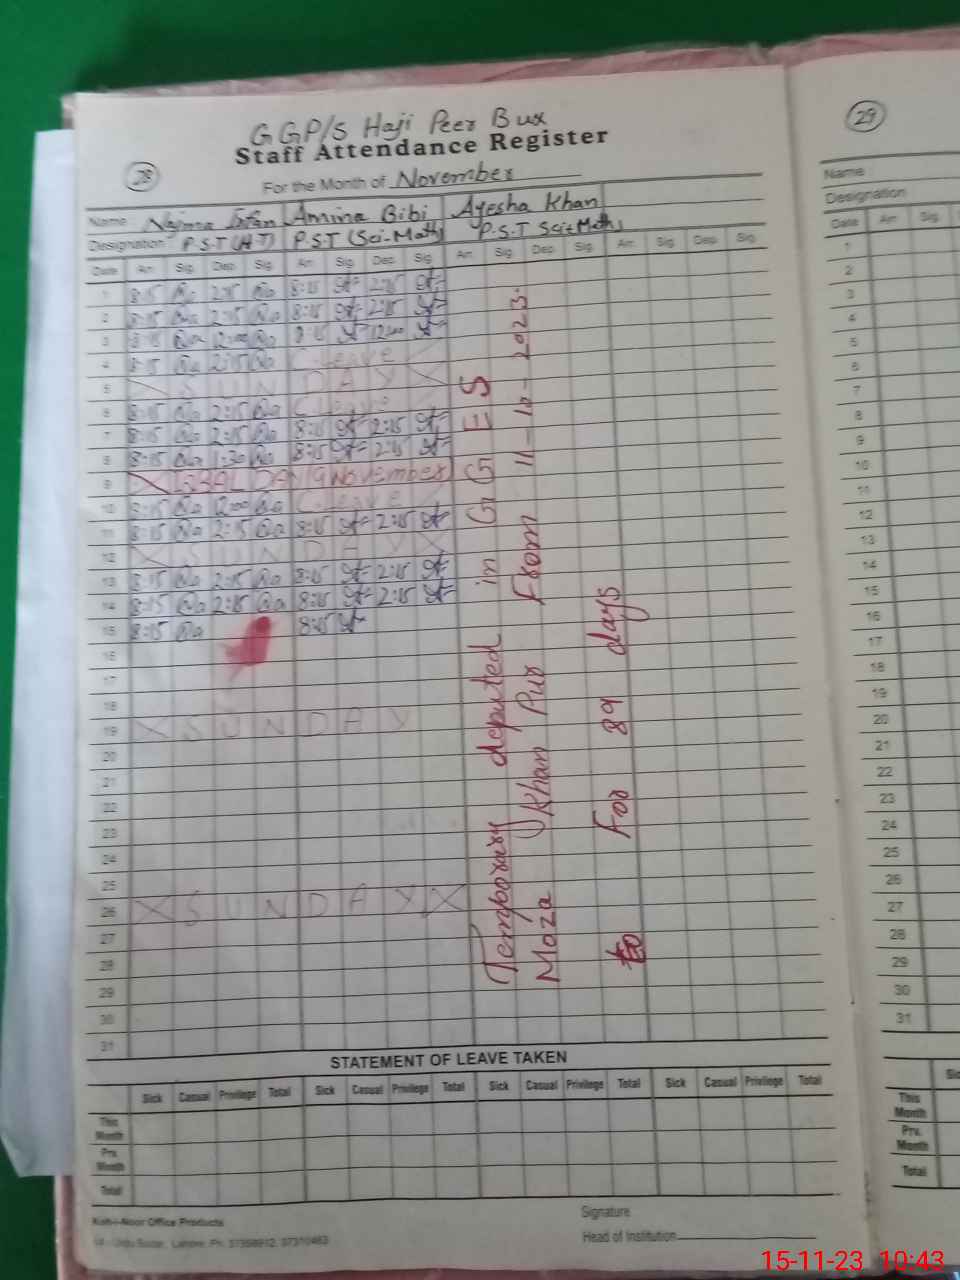 GGP/S Haji Peer Bux
Staff Attendance Register
28
For the Month of November
Name Najma Irfan Amina Bibi Ayesha Khan
Designation P.S.T (H-T) P.S.T (Sci-Math) P.S.T Sci+Math
Date Arr. Sig. Dep. Sig. Arr. Sig. Dep. Sig. Arr. Sig. Dep. Sig. Arr. Sig. Dep. Sig.
1 8:15 2:15 8:15 2:15
2 8:15 2:15 8:15 2:15
3 8:15 12:00 8:15 12:00
4 8:15 2:15 C.leave
5 SUNDAY
6 8:15 2:15 C.leave
7 8:15 2:15 8:15 2:15
8 8:15 1:30 8:15 2:15
9 IQBAL DAY 9 November
10 8:15 12:00 C.leave
11 8:15 2:15 8:15 2:15
12 SUNDAY
13 8:15 2:15 8:15 2:15
14 8:15 2:15 8:15 2:15
15 8:15 8:15
16
17
18
19 SUNDAY
20
21
22
23
24
25
26 SUNDAY
27
28
29
30
31
Temporary deputed in GGES
Moza Khan Pur From 11-10-2023.
For 89 days
STATEMENT OF LEAVE TAKEN
Sick Casual Privilege Total Sick Casual Privilege Total Sick Casual Privilege Total Sick Casual Privilege Total
This Month
Prv. Month
Total
Koh-i-Noor Office Products
Urdu Bazar, Lahore. Ph:
Signature
Head of Institution
29
Name
Designation
Date Arr. Sig.
1
2
3
4
5
6
7
8
9
10
11
12
13
14
15
16
17
18
19
20
21
22
23
24
25
26
27
28
29
30
31
This Month
Prv. Month
Total
15-11-23 10:43